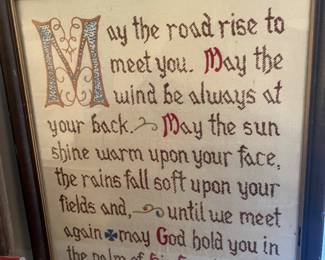 May the road rise to
meet you. May the
wind be always at
your back. May the sun
shine warm upon your face,
the rains fall soft upon your
fields and, until we meet
again may God hold you in
the palm of His